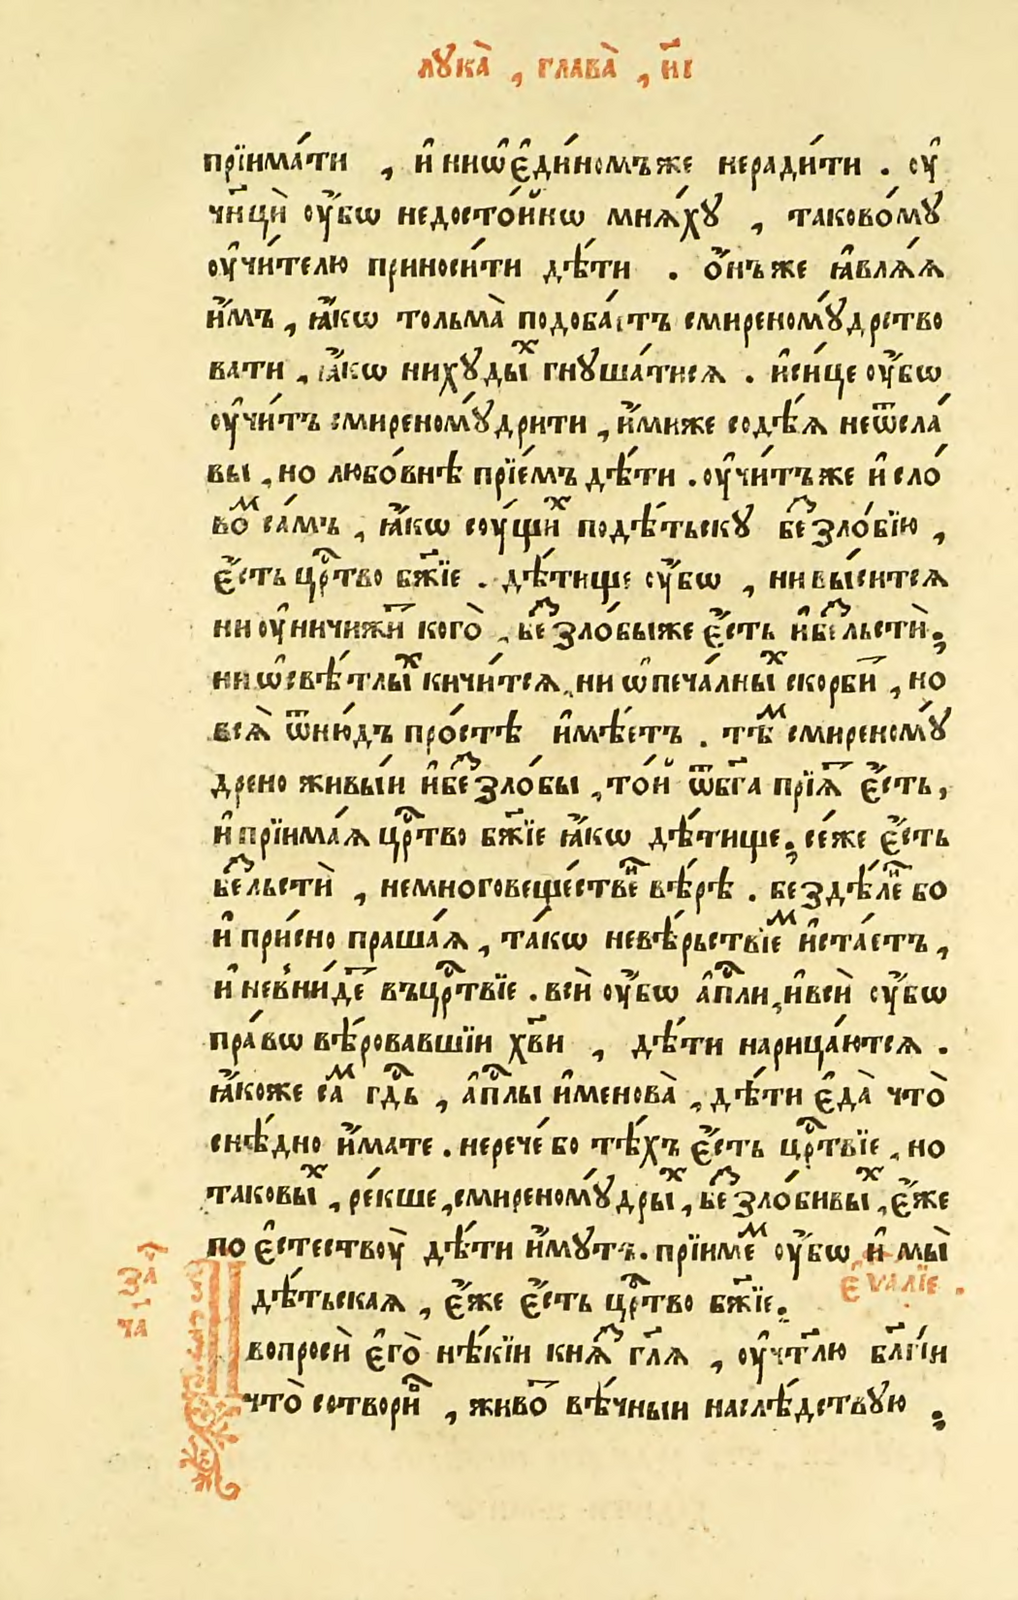 лꙋка̀ , глава̀ , и҃і
прїима́ти , и҆ ниѡ҆е҆ди́номъже неради́ти . оу҆
чн҃цы̀ оу҆́бѡ недосто́йнѡ мнѧ́хꙋ , таково́мꙋ
оу҆чи́телю приноси́ти дѣ́ти . ѻ҆́нъже ꙗ҆влѧ́ѧ
и҆̀мъ , ꙗ҆́кѡ тольма̀ подоба́етъ смиреномꙋ́дрство
вати , ꙗ҆́кѡ нихꙋды́ⷯ гнꙋша́тисѧ . и҆си́це оу҆́бѡ
оу҆чи́тъ смиреномꙋ́дрити , и҆́миже содѣ́ѧ неѿсла́
вы , но любо́внѣ прїе́мъ дѣ́ти . оу҆чи́тъже и҆ сло́
воⷨ са́мъ , ꙗ҆́кѡ соу́щиⷯ подѣ́тьскꙋ беⷥзло́бїю ,
є҆́сть црⷭ҇тво бж҃їе . дѣ́тище оу҆́бѡ , ни вы́ситсѧ
ни оу҆ничижи҃ кого̀ , беⷥзло́быже є҆́сть и҆беⷥльстѝ ;
ни ѡ҆свѣ́тлыⷯ кичи́тсѧ , ни ѡ҆печа́лныⷯ скорби҃ , но
всѧ̀ ѿню́дъ про́стѣ и҆мѣ́етъ . тѣⷨ смиреномꙋ́
дрено живы́и и҆беⷥзло́бы , то́й ѿбг҃а прїѧ҃ є҆́сть ,
и҆ прїима́ѧ црⷭ҇тво бж҃їе ꙗ҆́кѡ дѣ́тище ; се́же є҆́сть
беⷥльстѝ , немноговеще́ствеⷩ҇ вѣ́рѣ . бездѣ́леⷩ҇ бо
и҆ при́сно праша́ѧ , та́кѡ невѣ́рьствїеⷨ и҆ста́етъ ,
и҆ невни́де҃ въцрⷭ҇твїе . вси̑ оу҆́бѡ а҆пⷭ҇ли , и҆вси̑ оу҆́бѡ
пра́вѡ вѣ́ровавшїи хв҃и , дѣ́ти нарица́ютсѧ .
ꙗ҆́коже саⷨ гдⷭ҇ь , а҆пⷭ҇лы и҆менова̀ , дѣ́ти є҆да̀ что̀
снѣ́дно и҆́мате . нерече́ бо тѣ́хъ є҆́сть црⷭ҇твїе , но
таковыⷯ , ре́кше , смиреномꙋ́дрыⷯ , беⷥзло́бивыⷯ , є҆́же
по є҆стествоу̀ дѣ́ти и҆́мꙋтъ . прїимеⷨ оу҆́бѡ и҆ мы̀
дѣ́тьскаѧ , є҆́же є҆́сть црⷭ҇тво бж҃їе .
є҆ѵалїе .
заⷱ҇
ча
И вопроси̑ є҆го̀ нѣ́кїи кнѧⷥ гл҃ѧ , оу҆чт҃лю бл҃гїи
что̀ сотвориⷡ҇ , живо҃ вѣ́чныи наслѣ́дствꙋю ;